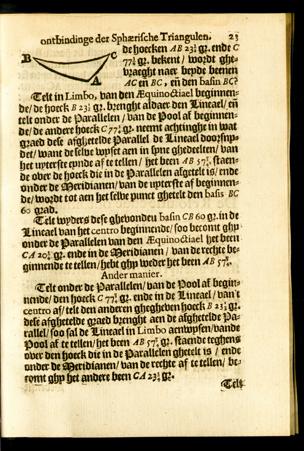 ontbindinge der Sphærische Triangulen. 23
B C A
de hoecken AB 23½ gr. ende C
77¼ gr. bekent / wordt ghe-
vraeght naer beyde beenen
AC en BC, eñ den basin BC?
Telt in Limbo, van den Æquinoctiael beginnen-
de / de hoeck B 23½ gr. brenght aldaer den Lineael / eñ
telt onder de Parallelen / van de Pool af beginnen-
de / de andere hoeck C 77¼ gr. neemt achtinghe in wat
graed dese afghetelde Parallel de Lineael doorsny-
det / want de selve wyset aen in hunc ghedeelten / van
het upterste ende af te tellen / het been AB 57¼. staen-
de over de hoeck die in de Parallelen afgetelt is / ende
onder de Meridianen / van de upterste af beginnen-
de / wordt tot aen het selve punct ghetelt den basis BC
60 graed.
Telt wyders dese ghevonden basin CB 60 gr. in de
Lineael van het centro beginnende / soo bcomt ghy
onder de Parallelen van den Æquinoctiael het been
CA 20¼ gr. ende in de Meridianen / van de rechte be-
ginnende te tellen / hebt ghy weder het been AB 57¼.
Ander manier.
Telt onder de Parallelen / van de Pool af begin-
nende / den hoeck C 77¼ gr. ende in de Lineael / van't
centro af / telt den anderen ghegheven hoeck B 23½ gr.
dese afghetelde graed brenght aen de afghetelde Pa-
rallel / soo sal de Lineael in Limbo aenwysen / vande
Pool af te tellen / het been AB 57¼ gr. staende teghens
over den hoeck die in de Parallelen ghetelt is / ende
onder de Meridianen / van de rechte af te tellen / be-
comt ghy het andere been CA 23½ gr.
Telt